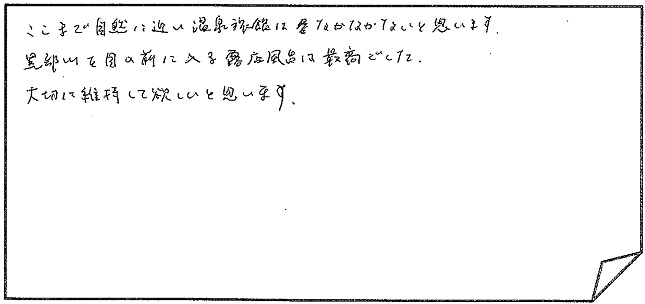 ここまで自然に近い温泉旅館はなかなかないと思います。
黒部川を目の前に入る露店風呂は最高でした。
大切に維持して欲しいと思います。